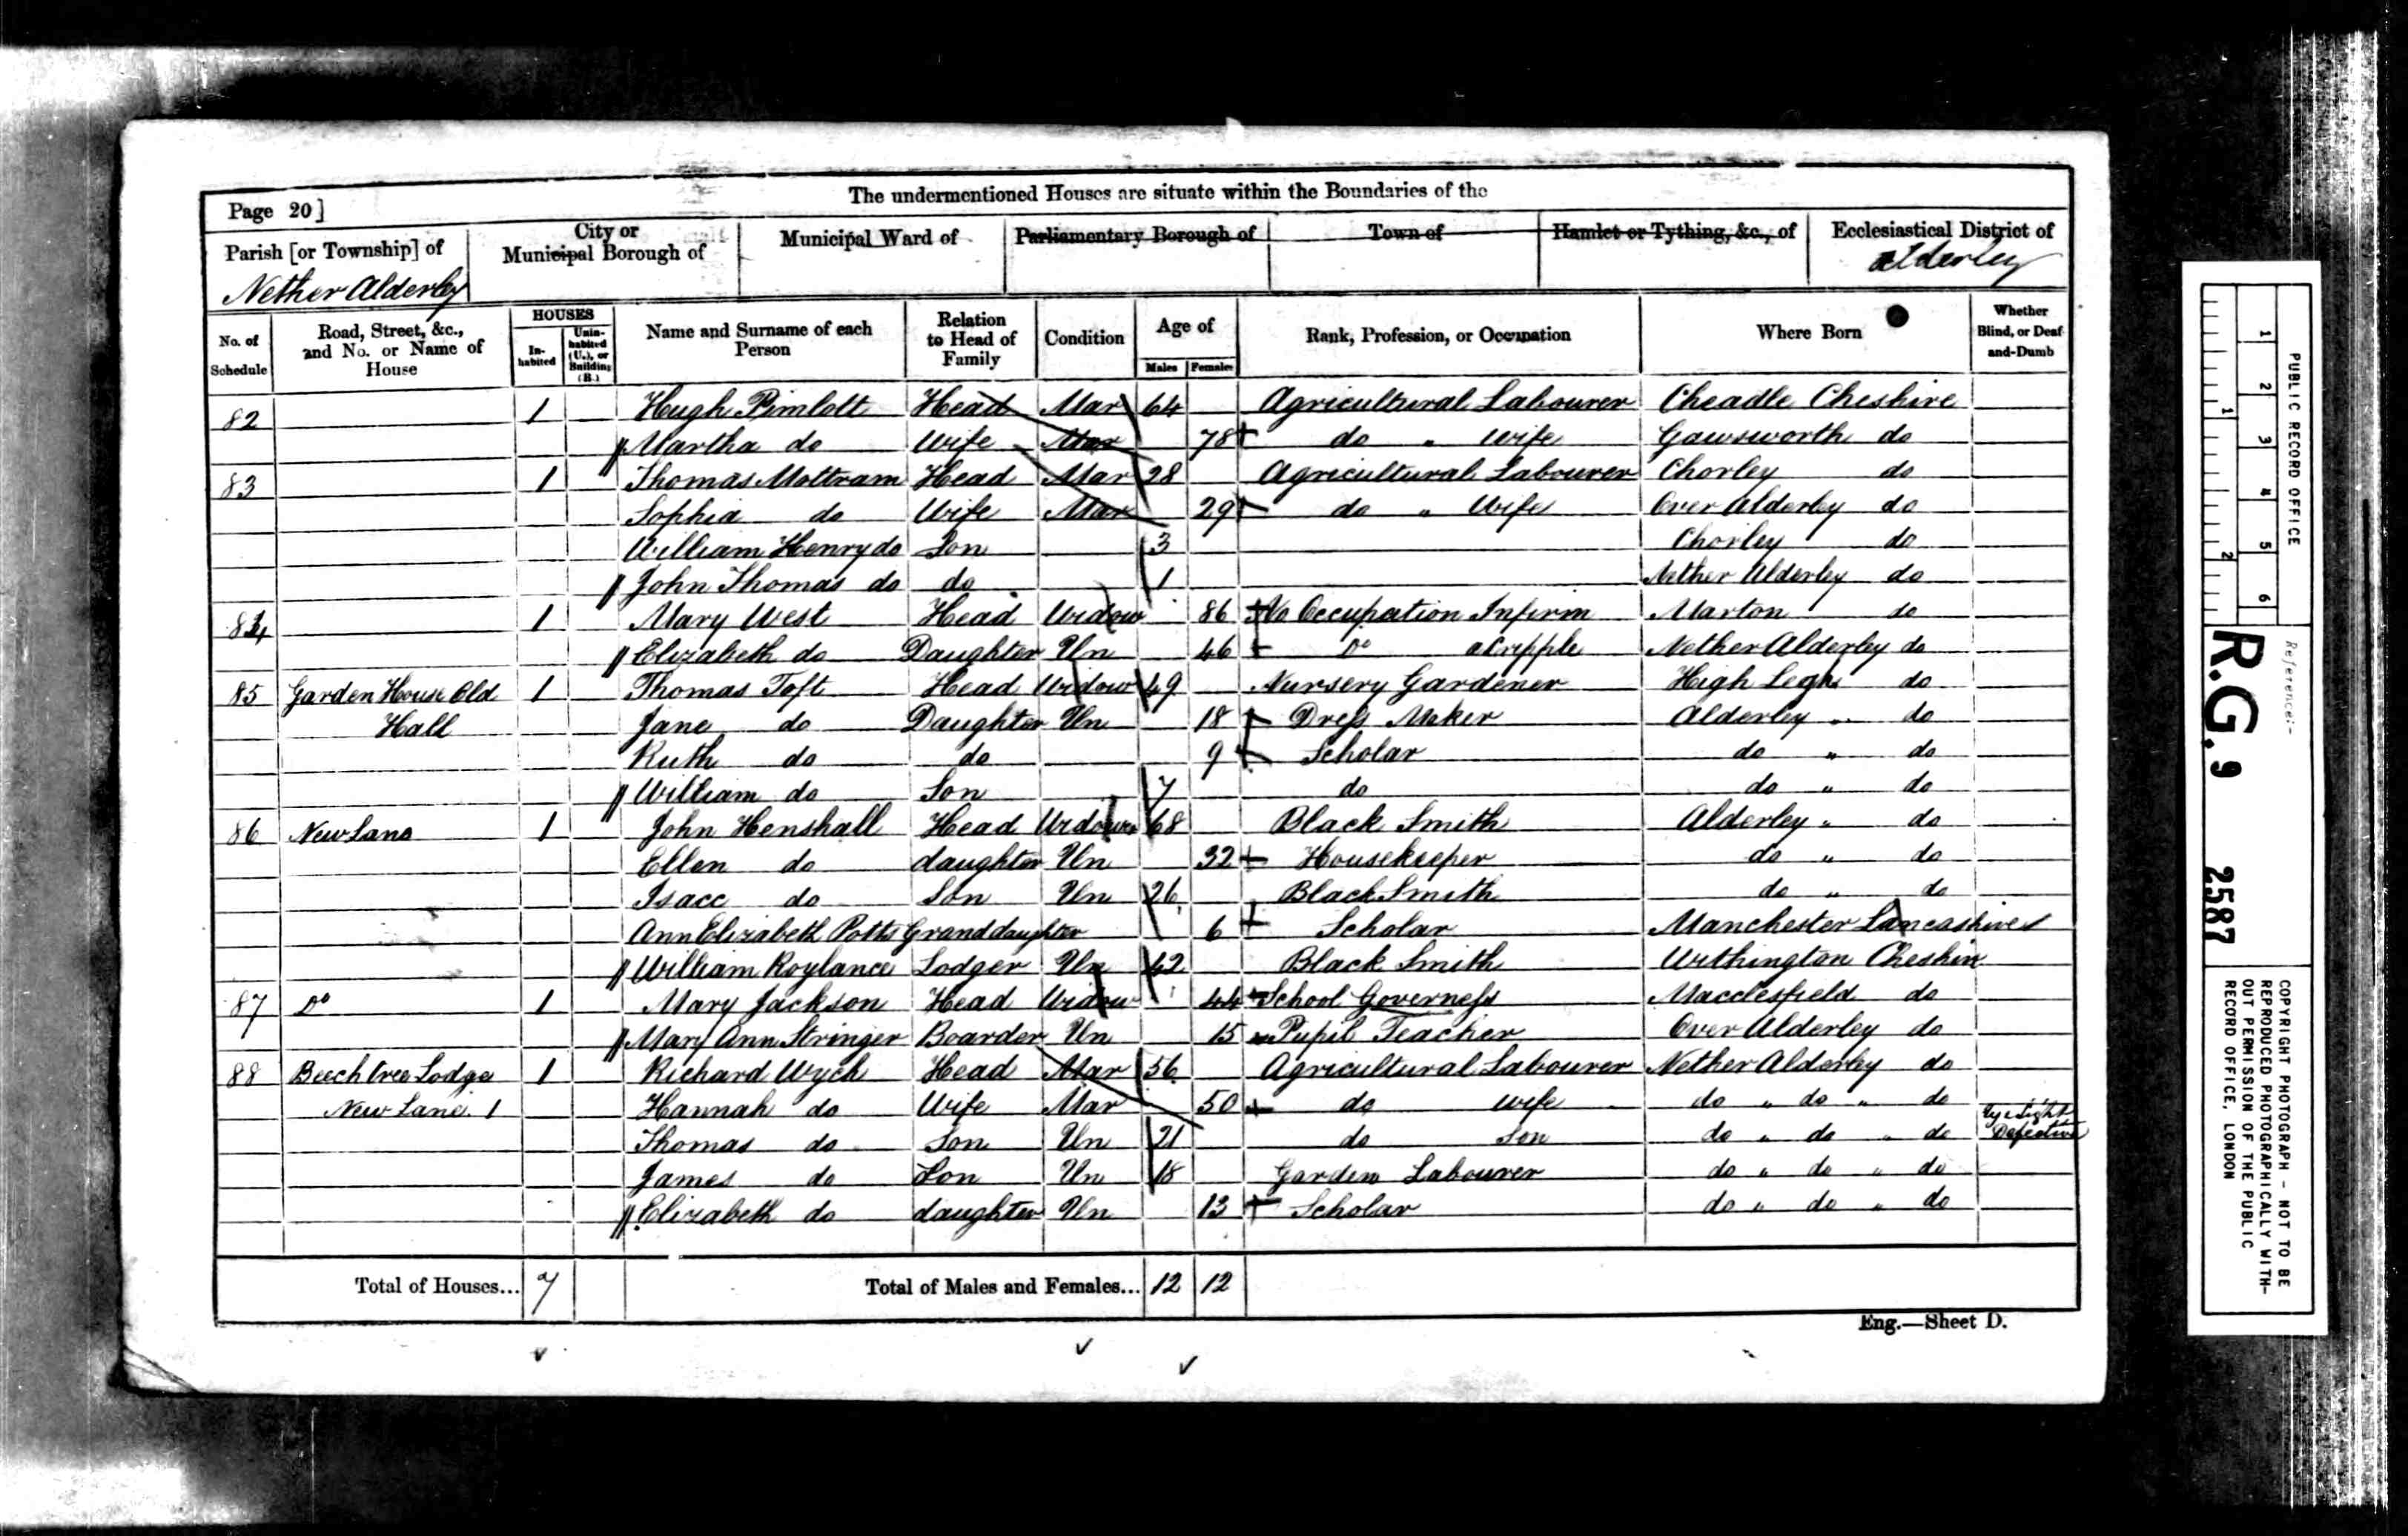 The undermentioned Houses are situate within the Boundaries of the
Page 20]
Parish [or Township] of
Nether Alderley
City or
Municipal Borough of
Municipal Ward of
Parliamentary Borough of
Town of
Hamlet or Tything, &c., of
Ecclesiastical District of
Alderley
No. of Schedule
Road, Street, &c., and No. or Name of House
HOUSES
In-habited
Unin-habited (U.), or Building (B.)
Name and Surname of each Person
Relation to Head of Family
Condition
Age of
Males
Females
Rank, Profession, or Occupation
Where Born
Whether Blind, or Deaf-and-Dumb
82 1 Hugh Pimlott Head Mar 64 Agricultural Labourer Cheadle Cheshire
Martha do Wife Mar 78 do " Wife Gawsworth do
83 1 Thomas Mottram Head Mar 28 Agricultural Labourer Chorley do
Sophia do Wife Mar 29 do " Wife Over Alderley do
William Henry do Son 3 Chorley do
John Thomas do do 1 Nether Alderley do
84 1 Mary West Head Widow 86 No Occupation Infirm Marton do
Elizabeth do Daughter Un 46 Do a Cripple Nether Alderley do
85 Garden House Old 1 Thomas Toft Head Widow 49 Nursery Gardener High Legh do
Hall Jane do Daughter Un 18 Dress Maker Alderley " do
Ruth do do 9 Scholar do " do
William do Son 7 do do " do
86 New Lane 1 John Henshall Head Widowr 68 Black Smith Alderley " do
Ellen do daughter Un 32 Housekeeper do " do
Isacc do Son Un 26 Black Smith do " do
Ann Elizabeth Potts Granddaughter 6 Scholar Manchester Lancashire
William Roylance Lodger Un 42 Black Smith Withington Cheshire
87 Do 1 Mary Jackson Head Widow 44 School Governess Macclesfield do
Mary Ann Stringer Boarder Un 15 Pupil Teacher Over Alderley do
88 Beech tree Lodge 1 Richard Wych Head Mar 56 Agricultural Labourer Nether Alderley do
New Lane 1 Hannah do Wife Mar 50 do wife do " do " do
Thomas do Son Un 21 do Son do " do " do Eye Sight Defective
James do Son Un 18 Garden Labourer do " do " do
Elizabeth do daughter Un 13 Scholar do " do " do
Total of Houses... 7 Total of Males and Females... 12 12
Eng.—Sheet D.
PUBLIC RECORD OFFICE
1 2 3 4 5 6
1 2
Reference:-
R.G. 9 2587
COPYRIGHT PHOTOGRAPH - NOT TO BE
REPRODUCED PHOTOGRAPHICALLY WITH-
OUT PERMISSION OF THE PUBLIC
RECORD OFFICE, LONDON